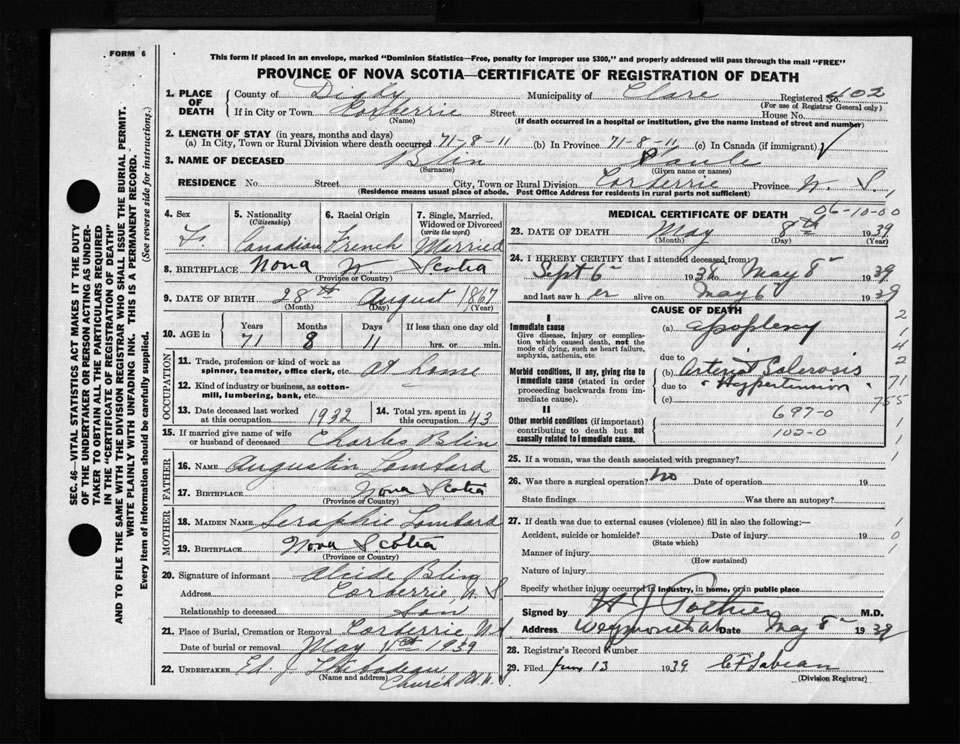 FORM 6
This form if placed in an envelope, marked "Dominion Statistics—Free, penalty for improper use $300," and properly addressed will pass through the mail "FREE"
PROVINCE OF NOVA SCOTIA—CERTIFICATE OF REGISTRATION OF DEATH
SEC. 46—VITAL STATISTICS ACT MAKES IT THE DUTY
OF THE UNDERTAKER OR PERSON ACTING AS UNDER-
TAKER TO OBTAIN ALL THE PARTICULARS REQUIRED
IN THE "CERTIFICATE OF REGISTRATION OF DEATH"
AND TO FILE THE SAME WITH THE DIVISION REGISTRAR WHO SHALL ISSUE THE BURIAL PERMIT.
WRITE PLAINLY WITH UNFADING INK. THIS IS A PERMANENT RECORD.
Every item of information should be carefully supplied. (See reverse side for instructions.)
1. PLACE OF DEATH County of Digby Municipality of Clare Registered No. 402
(For use of Registrar General only)
If in City or Town Corberrie Street House No.
(Name) (If death occurred in a hospital or institution, give the name instead of street and number)
2. LENGTH OF STAY (in years, months and days)
(a) In City, Town or Rural Division where death occurred 71-8-11 (b) In Province 71-8-11 (c) In Canada (if immigrant)
3. NAME OF DECEASED Blin Paule
(Surname) (Given name or names)
RESIDENCE No. Street City, Town or Rural Division Corberrie Province N. S.
(Residence means usual place of abode. Post Office Address for residents in rural parts not sufficient)
4. Sex 5. Nationality (Citizenship) 6. Racial Origin 7. Single, Married, Widowed or Divorced (write the word)
F. Canadian French Married
8. BIRTHPLACE Nova Scotia
(Province or Country)
9. DATE OF BIRTH 28th August 1867
(Month) (Day) (Year)
10. AGE in Years Months Days If less than one day old
71 8 11 hrs. or min.
OCCUPATION
11. Trade, profession or kind of work as spinner, teamster, office clerk, etc. at home
12. Kind of industry or business, as cotton-mill, lumbering, bank, etc.
13. Date deceased last worked at this occupation 1932 14. Total yrs. spent in this occupation 43
15. If married give name of wife or husband of deceased Charles Blin
FATHER
16. NAME Augustin Lombard
17. BIRTHPLACE Nova Scotia
(Province or Country)
MOTHER
18. MAIDEN NAME Seraphie Lombard
19. BIRTHPLACE Nova Scotia
(Province or Country)
20. Signature of informant Alcide Blin
Address Corberrie N S
Relationship to deceased Son
21. Place of Burial, Cremation or Removal Corberrie N S
Date of burial or removal May 11th 1939
22. UNDERTAKER Ed. J Thibodeau
(Name and address) Church Pt. N. S.
MEDICAL CERTIFICATE OF DEATH 06-10-00
23. DATE OF DEATH May 8th 1939
(Month) (Day) (Year)
24. I HEREBY CERTIFY that I attended deceased from:
Sept 6 1938 to May 8 1939
and last saw her alive on May 6 1939
CAUSE OF DEATH
I
Immediate cause
Give disease, injury or complication which caused death, not the mode of dying, such as heart failure, asphyxia, asthenia, etc
(a) apoplexy
due to
Morbid conditions, if any, giving rise to immediate cause (stated in order proceeding backwards from immediate cause).
(b) Arterio Sclerosis
due to "Hypertension"
(c)
II
Other morbid conditions (if important) contributing to death but not causally related to immediate cause.
697-0
102-0
25. If a woman, was the death associated with pregnancy?
26. Was there a surgical operation? No Date of operation 19
State findings Was there an autopsy?
27. If death was due to external causes (violence) fill in also the following:—
Accident, suicide or homicide? Date of injury 19
(State which)
Manner of injury
(How sustained)
Nature of injury
Specify whether injury occurred in industry, in home, or in public place
Signed by H J Pothier M.D.
Address Weymouth Date May 8 1939
28. Registrar's Record Number
29. Filed June 13 1939
(Division Registrar)